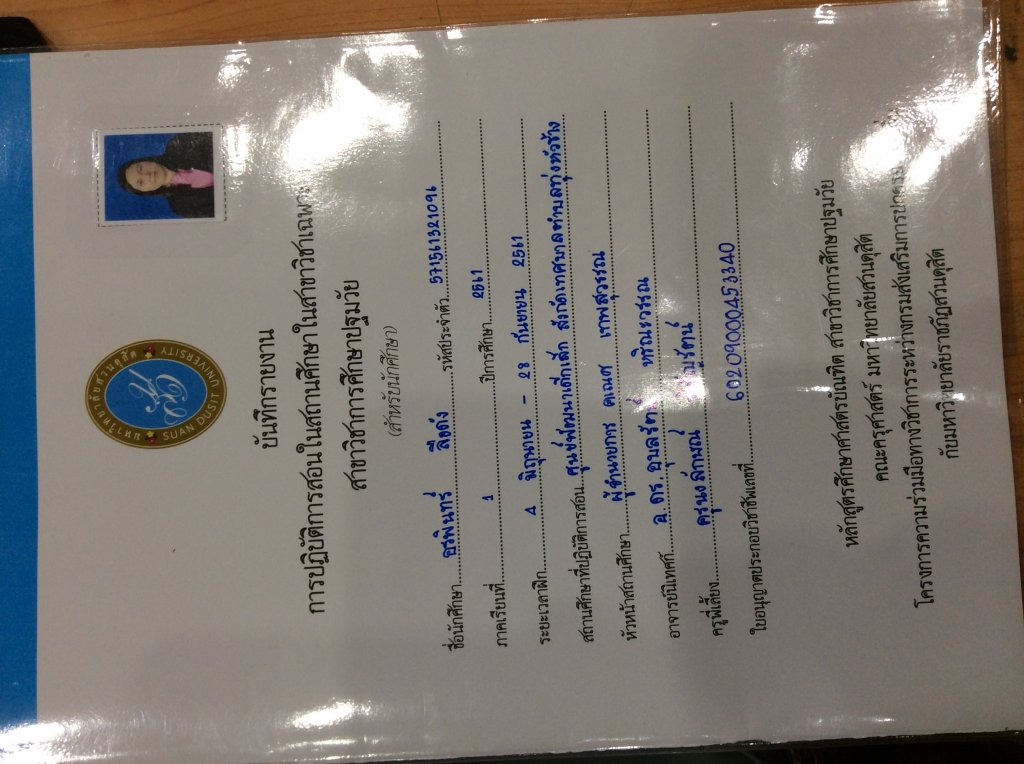 มหาวิทยาลัยสวนดุสิต
SUAN DUSIT UNIVERSITY
บันทึกรายงาน
การปฏิบัติการสอนในสถานศึกษาในสาขาวิชาเฉพาะ
สาขาวิชาการศึกษาปฐมวัย
(สำหรับนักศึกษา)
ชื่อนักศึกษา รหัสประจำตัว 571561321096
ภาคเรียนที่ 1 ปีการศึกษา 2561
ระยะเวลาฝึก 4 มิถุนายน - 28 กันยายน 2561
สถานศึกษาที่ปฏิบัติการสอน ศูนย์พัฒนาเด็กเล็ก สังกัดเทศบาลตำบลทุ่งหัวช้าง
หัวหน้าสถานศึกษา ผู้อำนวยการ คเณศ เทพสุวรรณ
อาจารย์นิเทศก์ อ.ดร.อุบลรัตน์ หริณวรรณ
ครูพี่เลี้ยง ครูนงลักษณ์
ใบอนุญาตประกอบวิชาชีพเลขที่ 60209000453340
หลักสูตรศึกษาศาสตรบัณฑิต สาขาวิชาการศึกษาปฐมวัย
คณะครุศาสตร์ มหาวิทยาลัยสวนดุสิต
โครงการความร่วมมือทางวิชาการระหว่างกรมส่งเสริมการปกครอง
กับมหาวิทยาลัยราชภัฏสวนดุสิต